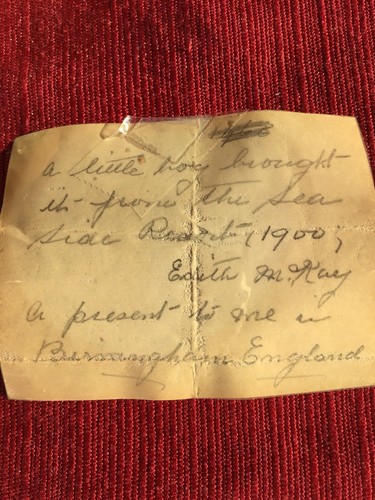 a little boy brought
it from the sea
side Resort, (1900,
Edith M. Kay
A present to me in
Birmingham England